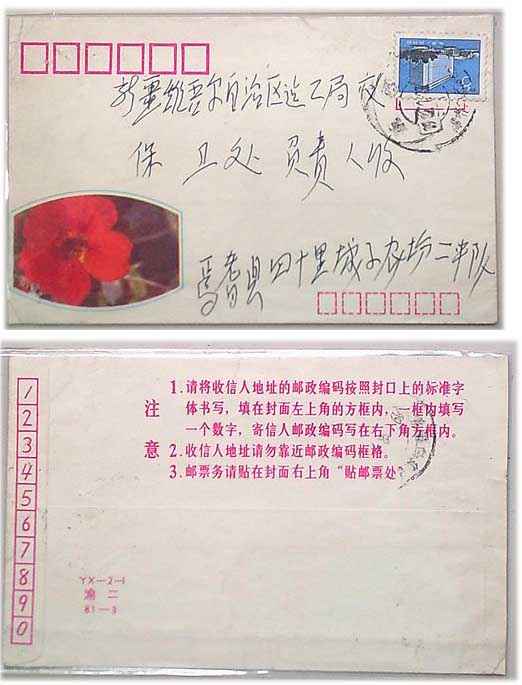 新疆维吾尔自治区造工局
保卫处负责人收
焉耆县四十里城子农场二中队
1
2
3
4
5
6
7
8
9
0
注意
1.请将收信人地址的邮政编码按照封口上的标准字
体书写，填在封面左上角的方框内，一框内填写
一个数字，寄信人邮政编码写在右下角方框内。
2.收信人地址请勿靠近邮政编码框格。
3.邮票务请贴在封面右上角“贴邮票处”
YX—2—1
渝二
81—3